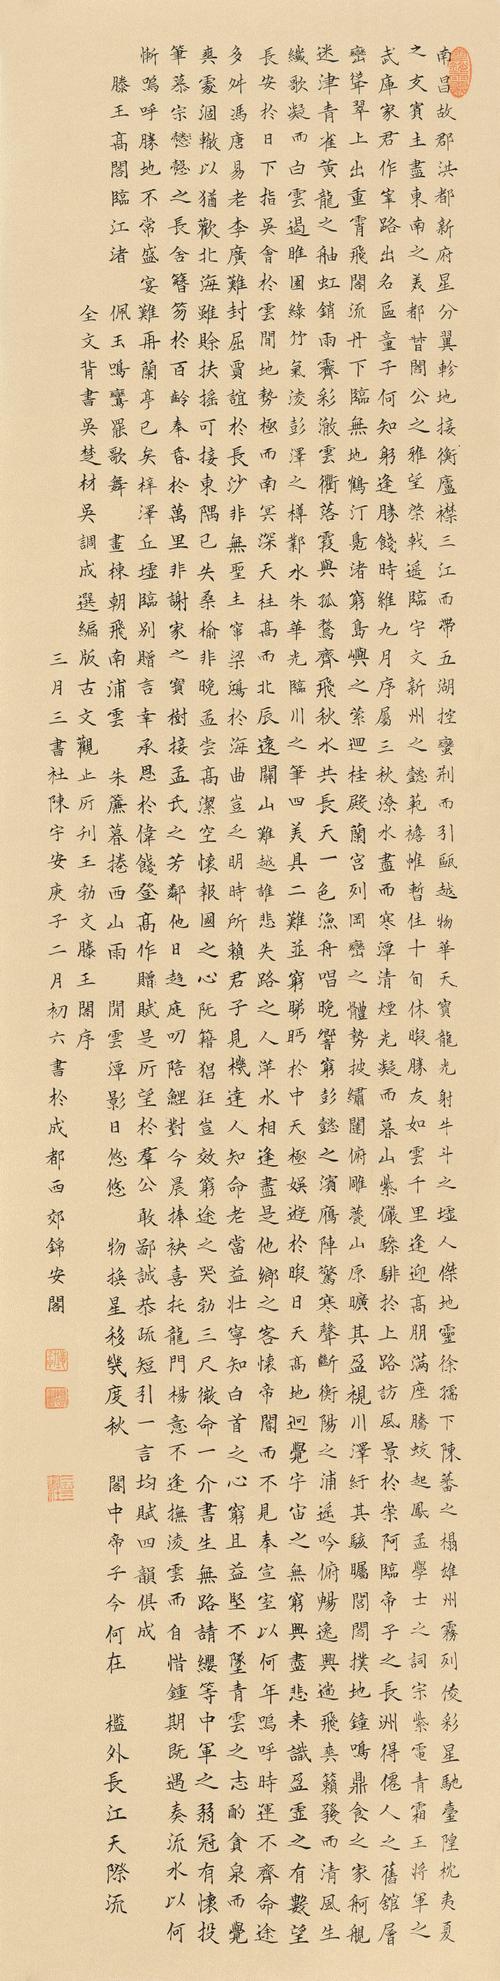 南昌故郡洪都新府星分翼軫地接衡廬襟三江而帶五湖控蠻荊而引甌越物華天寶龍光射牛斗之墟人傑地靈徐孺下陳蕃之榻雄州霧列俊彩星馳臺隍枕夷夏
之交賓主盡東南之美都督閻公之雅望棨戟遙臨宇文新州之懿範襜帷暫住十旬休暇勝友如雲千里逢迎高朋滿座騰蛟起鳳孟學士之詞宗紫電青霜王將軍之
武庫家君作宰路出名區童子何知躬逢勝餞時維九月序屬三秋潦水盡而寒潭清煙光凝而暮山紫儼驂騑於上路訪風景於崇阿臨帝子之長洲得僊人之舊館層
巒聳翠上出重霄飛閣流丹下臨無地鶴汀鳧渚窮島嶼之縈迴桂殿蘭宮列岡巒之體勢披繡闥俯雕甍山原曠其盈視川澤紆其駭矚閭閻撲地鐘鳴鼎食之家舸艦
迷津青雀黃龍之舳虹銷雨霽彩澈雲衢落霞與孤鶩齊飛秋水共長天一色漁舟唱晚響窮彭蠡之濱鴈陣驚寒聲斷衡陽之浦遙吟俯暢逸興遄飛爽籟發而清風生
纖歌凝而白雲遏睢園綠竹氣淩彭澤之樽鄴水朱華光臨川之筆四美具二難並窮睇眄於中天極娛遊於暇日天高地迥覺宇宙之無窮興盡悲來識盈虛之有數望
長安於日下指吳會於雲間地勢極而南冥深天柱高而北辰遠關山難越誰悲失路之人萍水相逢盡是他鄉之客懷帝閽而不見奉宣室以何年嗚呼時運不齊命途
多舛馮唐易老李廣難封屈賈誼於長沙非無聖主竄梁鴻於海曲豈乏明時所賴君子見機達人知命老當益壯寧知白首之心窮且益堅不墜青雲之志酌貪泉而覺
爽處涸轍以猶歡北海雖賒扶搖可接東隅已失桑榆非晚孟嘗高潔空懷報國之心阮籍猖狂豈效窮途之哭勃三尺微命一介書生無路請纓等中軍之弱冠有懷投
筆慕宗慤之長舍簪笏於百齡奉昏於萬里非謝家之寶樹接孟氏之芳鄰他日趨庭叨陪鯉對今晨捧袂喜托龍門楊意不逢撫淩雲而自惜鍾期既遇奏流水以何
慚嗚呼勝地不常盛宴難再蘭亭已矣梓澤丘墟臨別贈言幸承恩於偉餞登高作贈賦是所望於羣公敢鄙誠恭疏短引一言均賦四韻俱成
滕王高閣臨江渚 佩玉鳴鸞罷歌舞 畫棟朝飛南浦雲 朱簾暮捲西山雨 閒雲潭影日悠悠 物換星移幾度秋 閣中帝子今何在 檻外長江天際流
全文背書吳楚材吳調成選編版古文觀止所刊王勃文滕王閣序
三月三書社陳宇安庚子二月初六書於成都西郊錦安閣